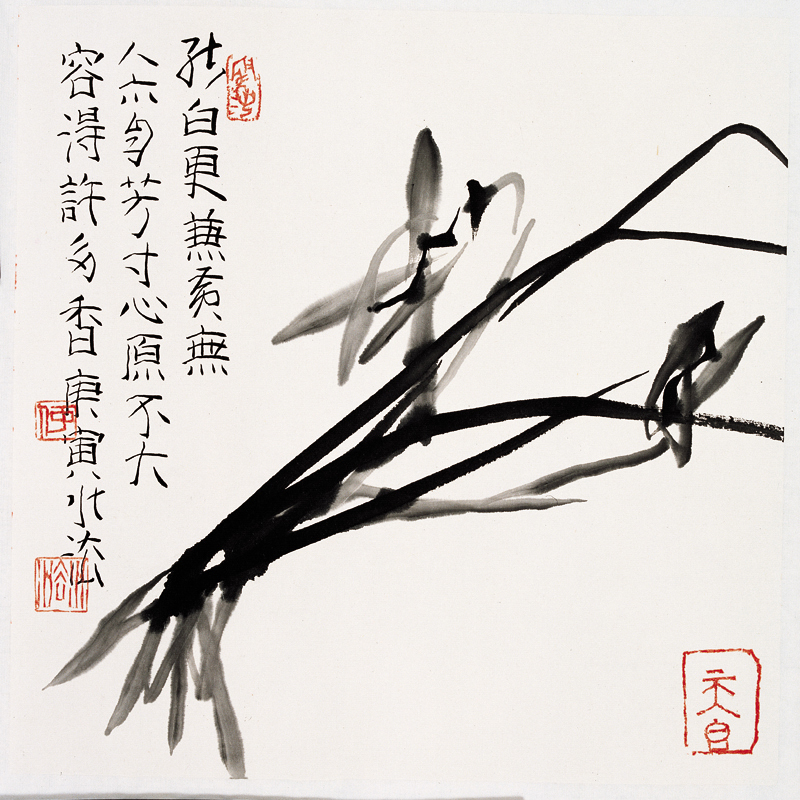 能白更兼黄無
人亦自芳寸心原不大
容得許多香庚寅水